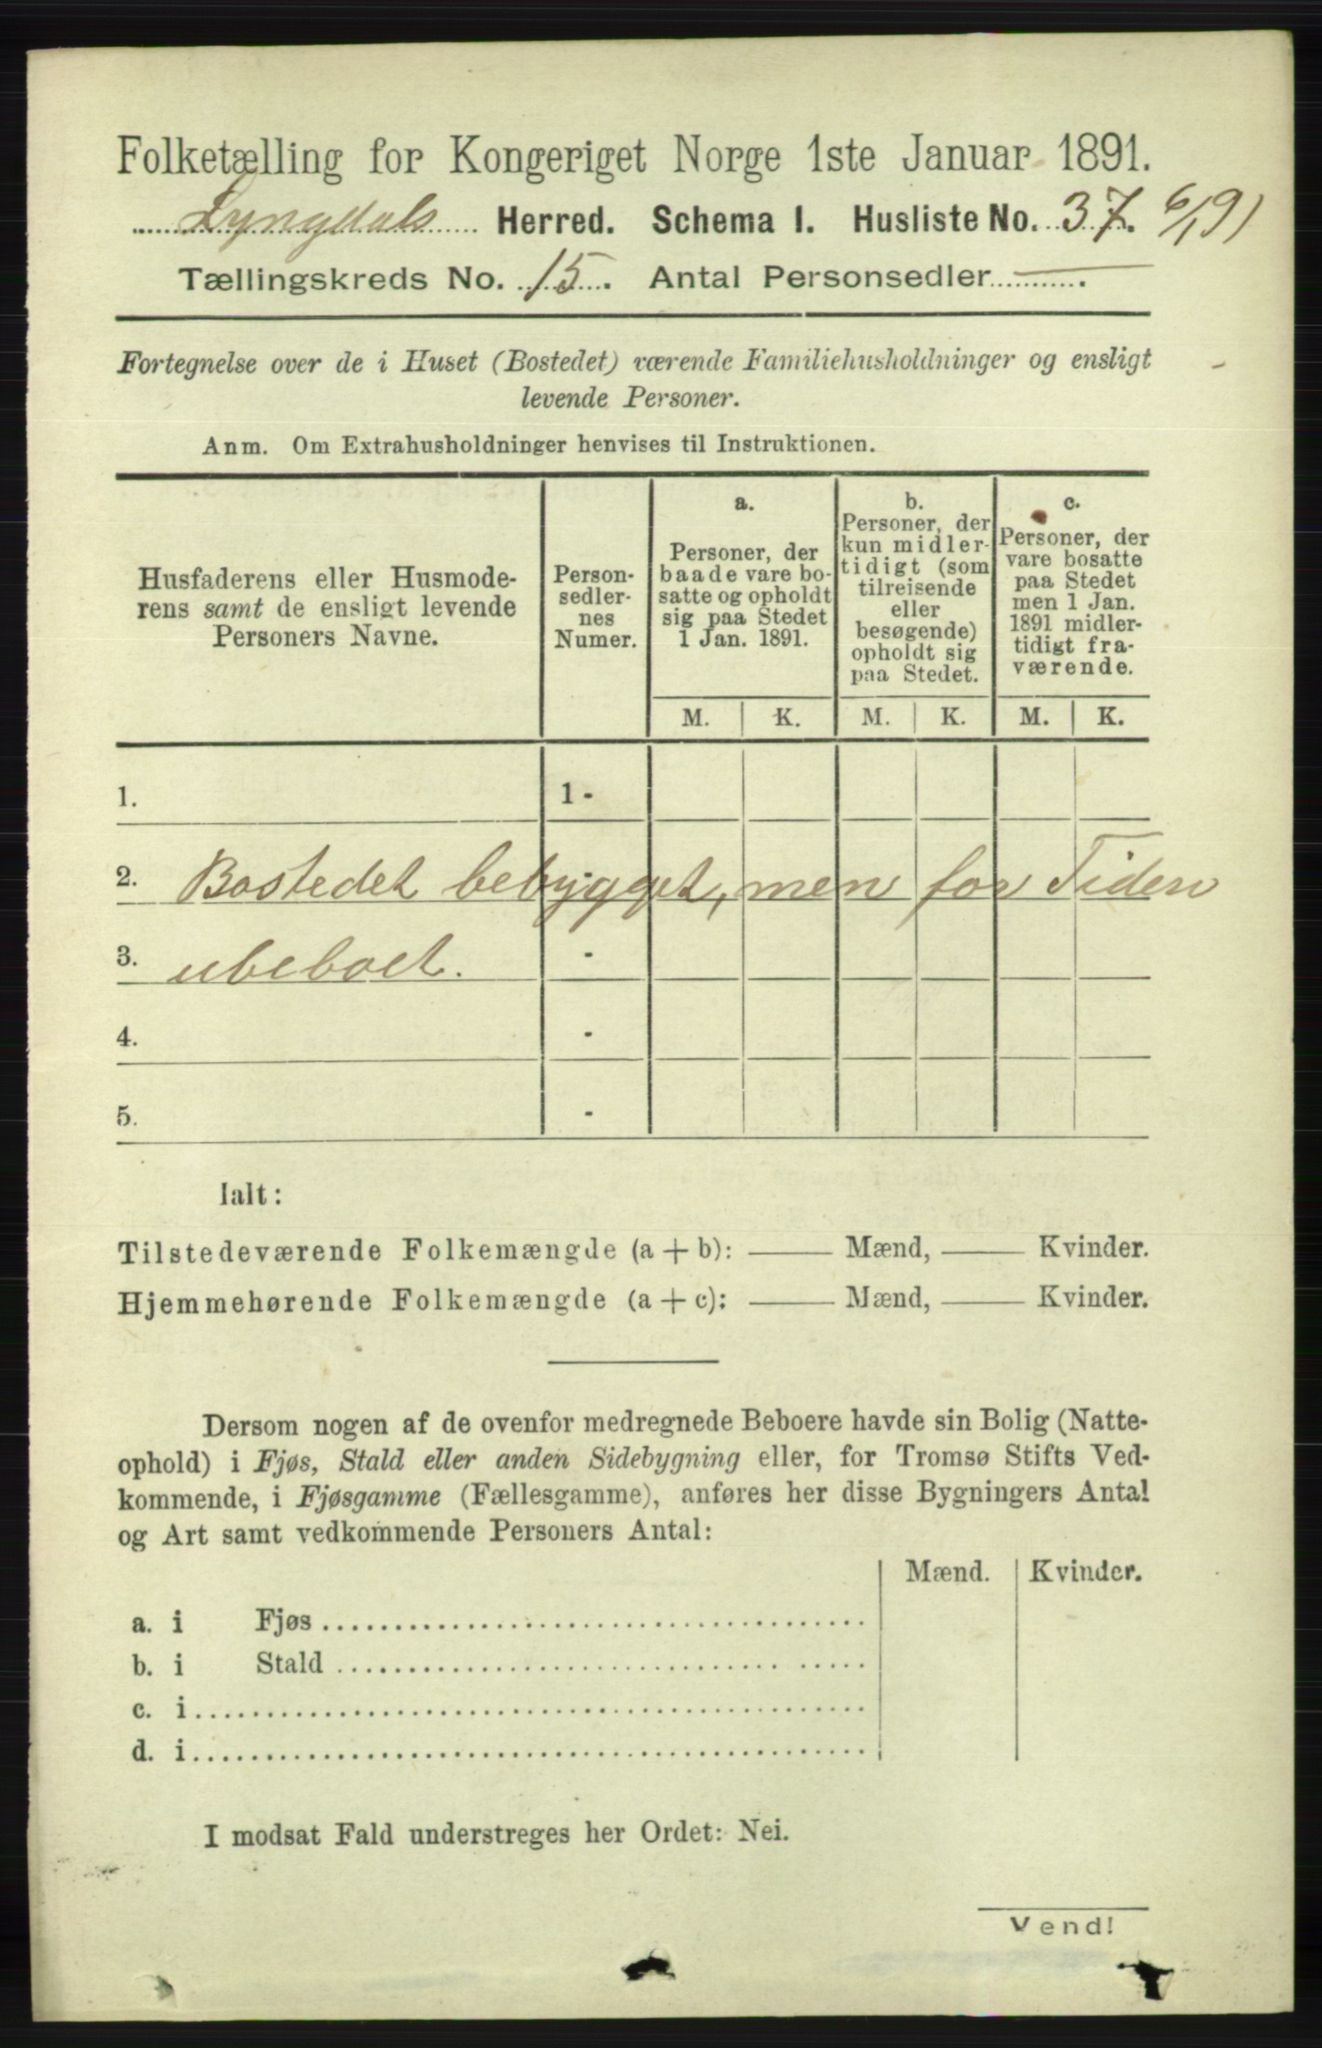 Folketælling for Kongeriget Norge 1ste Januar 1891.
Lyngdals Herred. Schema I. Husliste No. 37. 6/1 91
Tællingskreds No. 15. Antal Personsedler — .
Fortegnelse over de i Huset (Bostedet) værende Familiehusholdninger og ensligt
levende Personer.
Anm. Om Extrahusholdninger henvises til Instruktionen.
Husfaderens eller Husmode-
rens samt de ensligt levende
Personers Navne.
Person-
sedler-
nes
Numer.
a.
Personer, der
baade vare bo-
satte og opholdt
sig paa Stedet
1 Jan. 1891.
b.
Personer, der
kun midler-
tidigt (som
tilreisende
eller
besøgende)
opholdt sig
paa Stedet.
c.
Personer, der
vare bosatte
paa Stedet
men 1 Jan.
1891 midler-
tidigt fra-
værende.
M. K. M. K. M. K.
1. 1 -
2. Bostedet bebygget, men for Tiden
3. ubeboet. -
4. -
5. -
Ialt:
Tilstedeværende Folkemængde (a + b): — Mænd, — Kvinder.
Hjemmehørende Folkemængde (a + c): — Mænd, — Kvinder.
Dersom nogen af de ovenfor medregnede Beboere havde sin Bolig (Natte-
ophold) i Fjøs, Stald eller anden Sidebygning eller, for Tromsø Stifts Ved-
kommende, i Fjøsgamme (Fællesgamme), anføres her disse Bygningers Antal
og Art samt vedkommende Personers Antal:
Mænd. Kvinder.
a. i Fjøs
b. i Stald
c. i
d. i
I modsat Fald understreges her Ordet: Nei.
Vend!